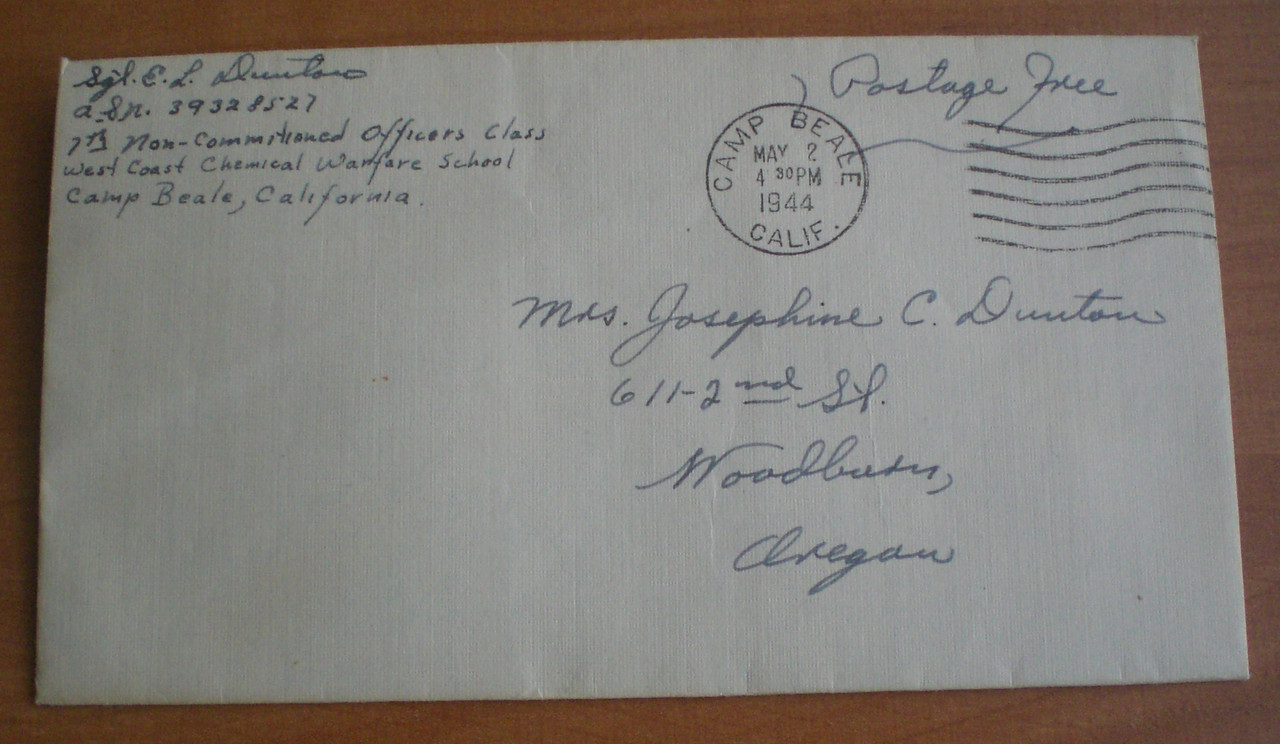 Sgt. E. L. Dunton
A.S.N. 39328527
7th Non-Commitioned Officers Class
West Coast Chemical Warfare School
Camp Beale, California.
Postage Free
CAMP BEALE
MAY 2
4 30 PM
1944
CALIF.
Mrs. Josephine C. Dunton
611-2nd St.
Woodburn,
Oregon